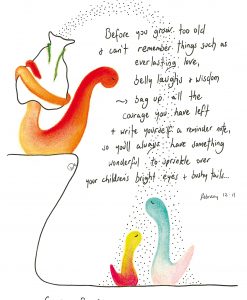 Before you grow too old
& can't remember things such as
everlasting love,
belly laughs & wisdom
→ bag up all the
courage you have left
& write yourself a reminder note,
so you'll always have something
wonderful to sprinkle over
your children's bright eyes + bushy tails...